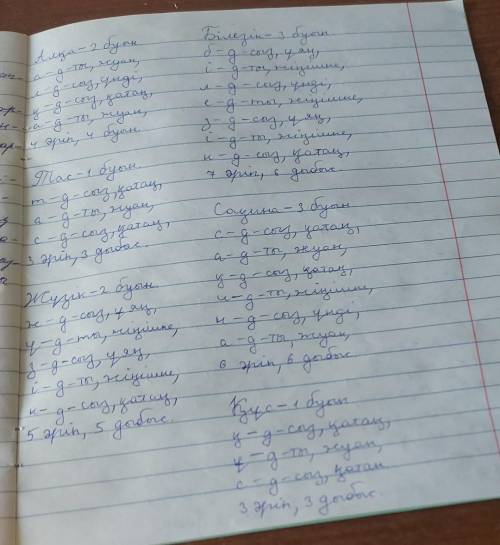 Алқа-2 буын
а-д-ты, жуан,
л-д-сыз, үнді,
қ-д-сыз, қатаң,
а-д-ты, жуан,
4 әріп, 4 буын
Тас-1 буын
т-д-сыз, қатаң,
а-д-ты, жуан,
с-д-сыз, қатаң,
3 әріп, 3 дыбыс.
Жүзік-2 буын
ж-д-сыз, ұяң,
ү-д-ты, жіңішке,
з-д-сыз, ұяң,
і-д-ты, жіңішке,
к-д-сыз, қатаң,
5 әріп, 5 дыбыс.
Білезік-3 буын
б-д-сыз, ұяң,
і-д-ты, жіңішке,
л-д-сыз, үнді,
е-д-ты, жіңішке,
з-д-сыз, ұяң,
і-д-ты, жіңішке,
к-д-сыз, қатаң,
7 әріп, 6 дыбыс.
Сақина-3 буын
с-д-сыз, қатаң,
а-д-ты, жуан,
қ-д-сыз, қатаң,
и-д-ты, жіңішке,
н-д-сыз, үнді,
а-д-ты, жуан,
6 әріп, 6 дыбыс.
Құс-1 буын
қ-д-сыз, қатаң,
ұ-д-ты, жуан,
с-д-сыз, қатаң
3 әріп, 3 дыбыс.